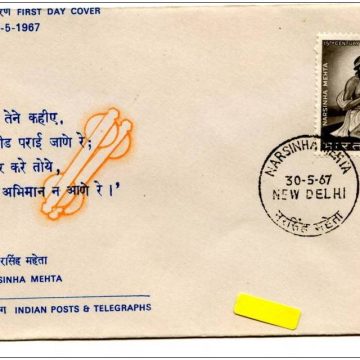 रण FIRST DAY COVER
-5-1967
तेने कहीए,
ीड पराई जाणे रे;
र करे तोये,
अभिमान न आणे रे।'
रसिंह महेता
SINHA MEHTA
ाग INDIAN POSTS & TELEGRAPHS
15TH CENTURY
NARSINHA MEHTA
NARSINHA MEHTA
30-5-67
NEW DELHI
नरसिंह महेता